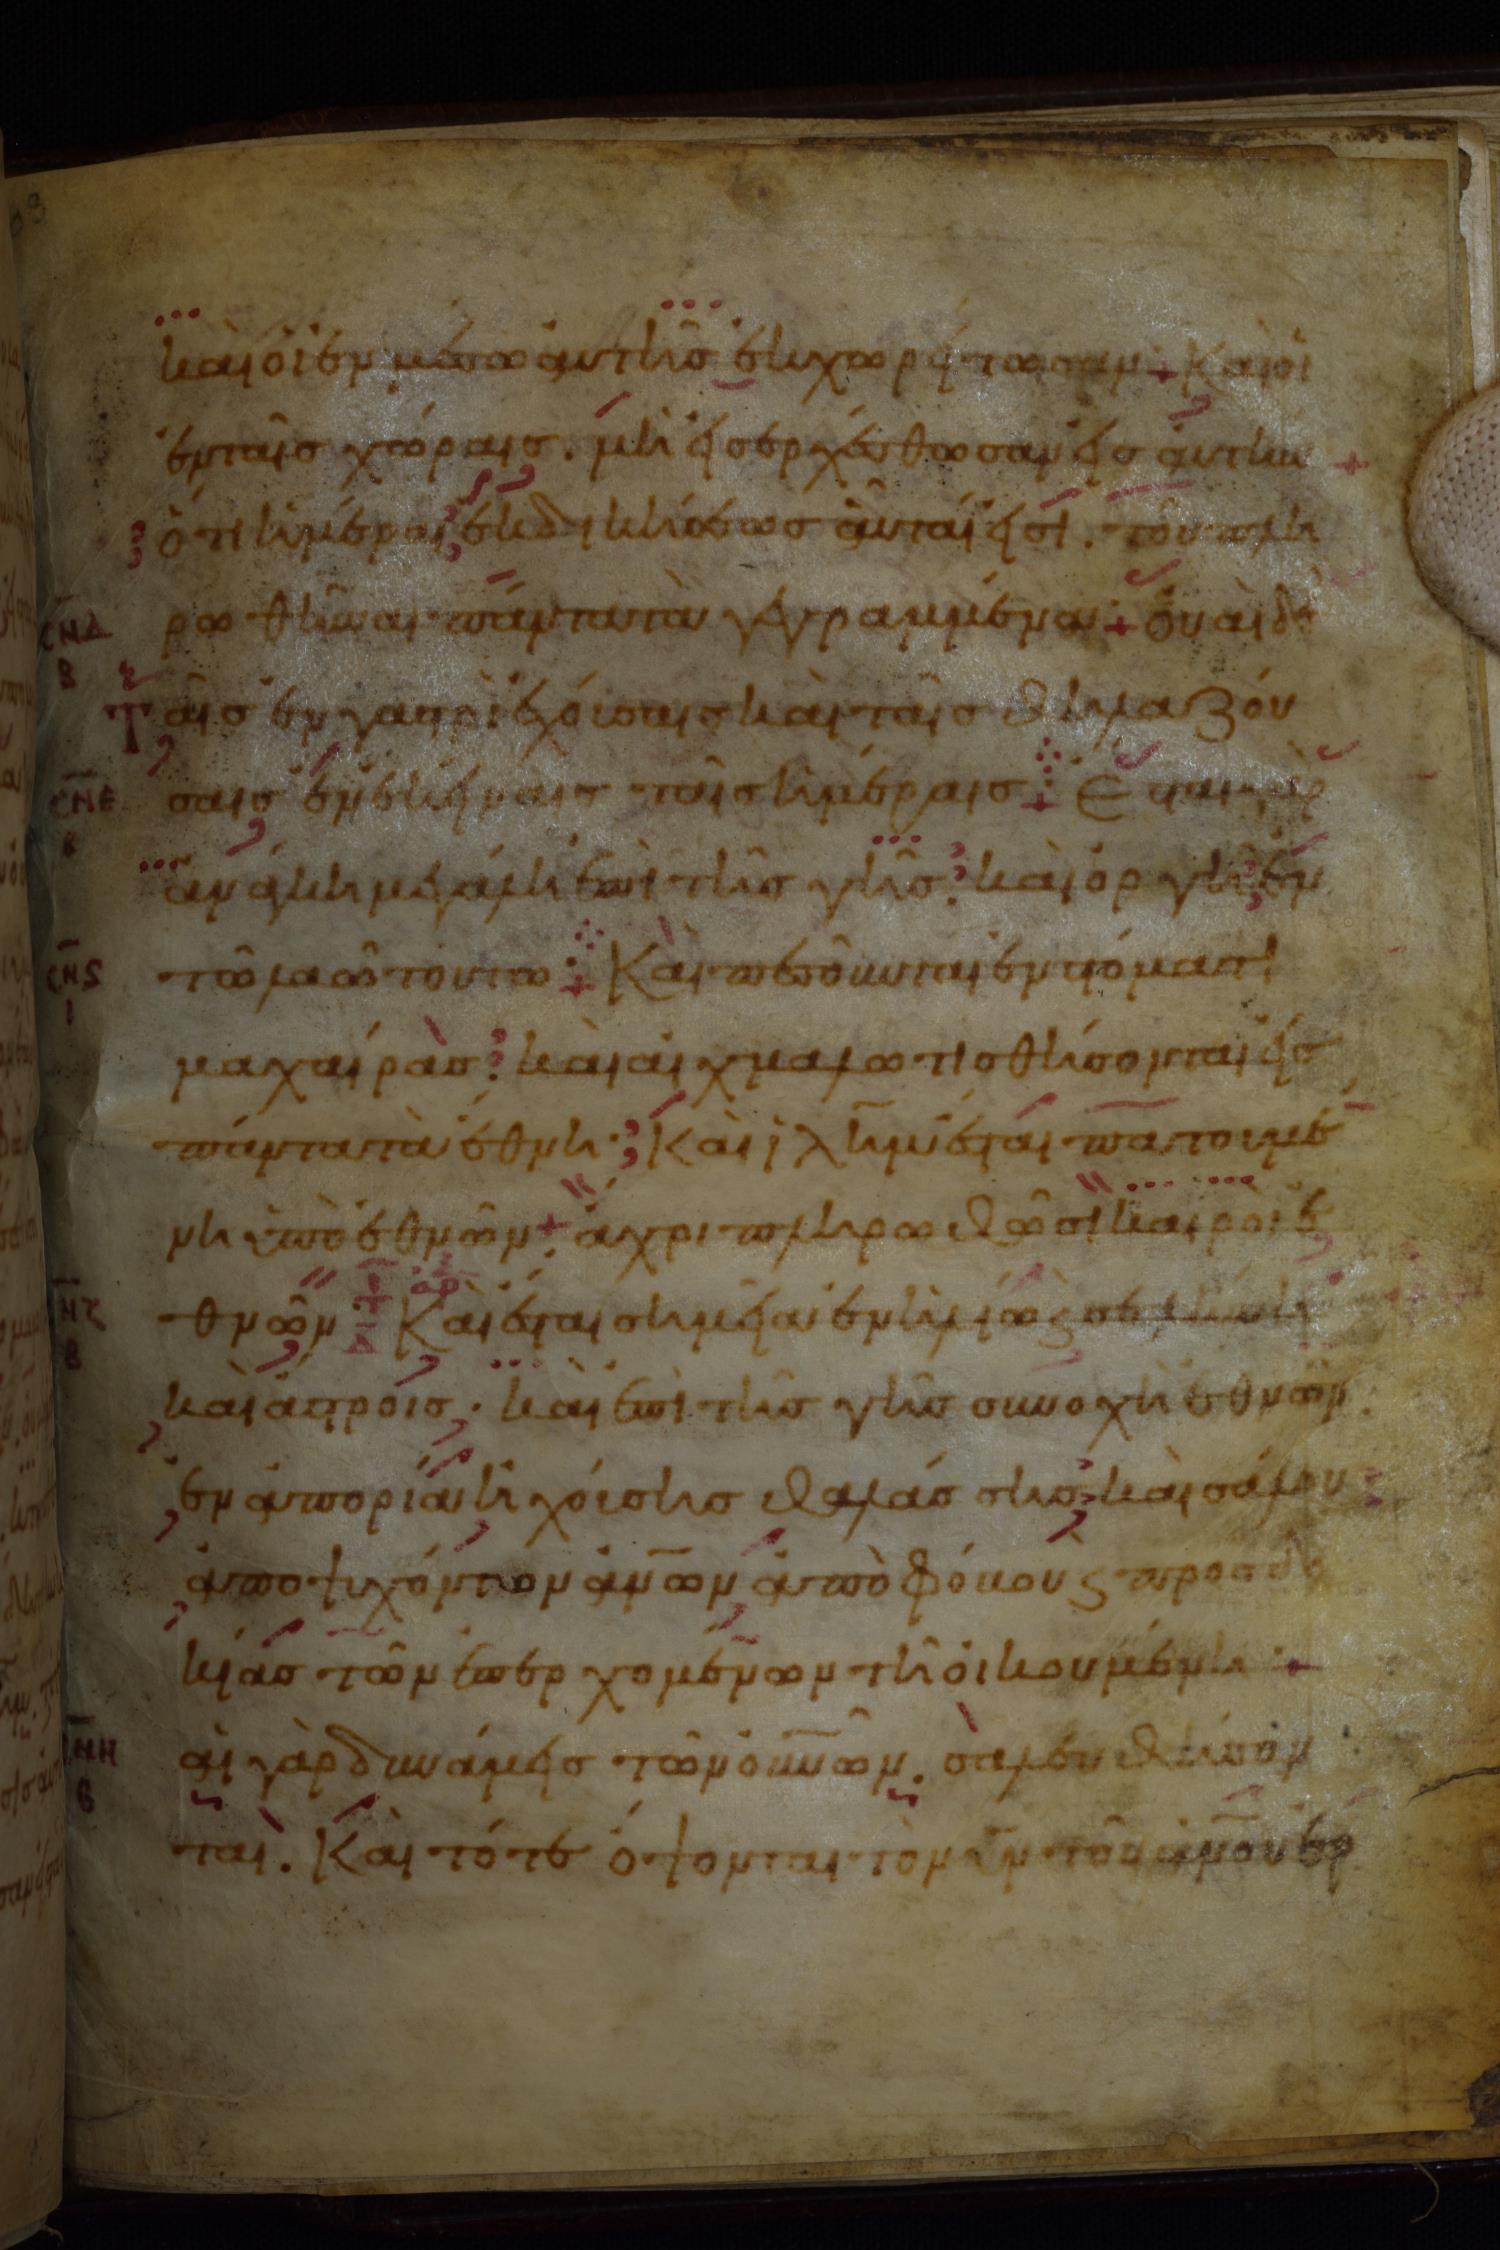 καὶ οἱ ἐν μέσω αὐτῆς ἐκχωρήτωσαν + Καὶ οἱ
ἐν ταῖς χώραις. μὴ εἰσερχέσθωσαν εἰς αὐτὴν +
ὅτι ἡμέραι ἐκδικήσεως αὗταί εἰσι. τοῦ πλη
ρωθῆναι πάντα τὰ γεγραμμένα + οὐαὶ δὲ
ταῖς ἐν γαστρὶ ἐχούσαις καὶ ταῖς θηλαζού
σαις ἐν ἐκείναις ταῖς ἡμέραις + Ἔσται γὰρ
ἀνάγκη μεγάλη ἐπὶ τῆς γῆς. καὶ ὀργὴ ἐν
τῶ λαῶ τούτω + Καὶ πεσοῦνται ἐν στόματι
μαχαίρας. καὶ αἰχμαλωτισθήσονται εἰς
πάντα τὰ ἔθνη. Καὶ ἱλῆμ ἔσται πατουμέ
νη ὑπὸ ἐθνῶν +. ἄχρι πληρωθῶσι καιροὶ ἐ
θνῶν. Καὶ ἔσται σημεῖα ἐν ἡλίω ϛ σελήνη
καὶ ἄστροις. καὶ ἐπὶ τῆς γῆς συνοχὴ ἐθνῶν.
ἐν ἀπορίᾳ ἠχούσης θαλάσσης καὶ σάλου
ἀποψυχόντων ἀνῶν ἀπὸ φόβου ϛ προσδο
κίας τῶν ἐπερχομένων τῆ οἰκουμένη +
αἱ γὰρ δυνάμεις τῶν οὐνῶν. σαλευθήσον
ται. Καὶ τότε ὄψονται τὸν ῡν τοῦ ἀνου ἐρ
ϹΝΔ
Β
ϹΝΕ
ϹΝϚ
Ι
ΝΖ
Β
ΝΗ